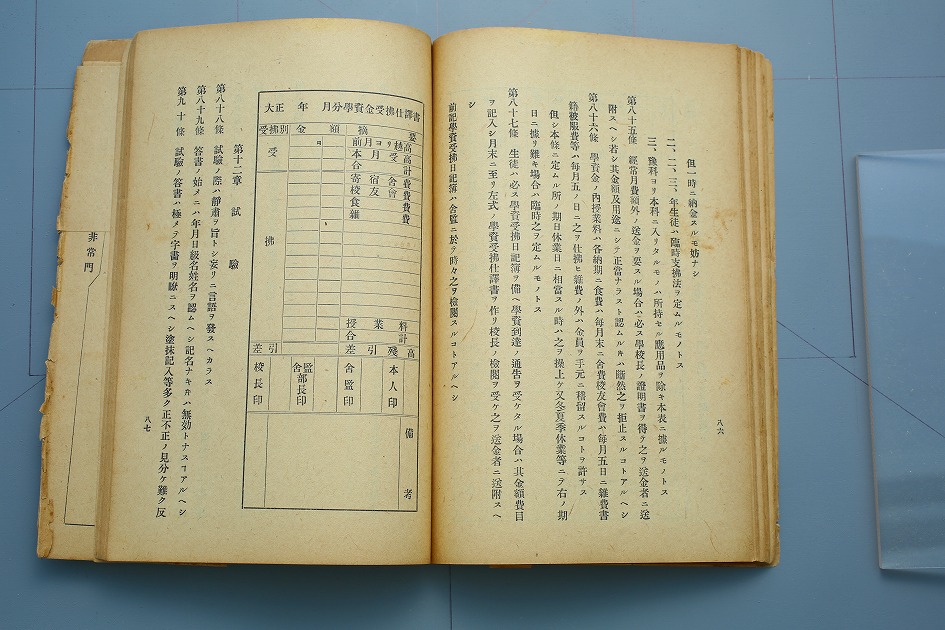 但一時ニ納金スルモ妨ナシ
二、二、三、年生徒ハ臨時支拂法ヲ定ムルモノトス
三、豫科ヨリ本科ニ入リタルモノハ所持セル應用品ヲ除キ本表ニ據ルモノトス
第八十五條 經常月費額外ノ送金ヲ要スル場合ハ必ス學校長ノ證明書ヲ得テ之ヲ送金者ニ送
附スヘシ若シ其金額及用途ニシテ正當ナラスト認ムルキハ斷然之ヲ拒止スルコトアルヘシ
第八十六條 學資金ノ內授業料ハ各納期ニ食費ハ每月末ニ舎費校友會費ハ每月五日ニ雜費書
籍被服費等ハ每月五ノ日ニ之ヲ仕拂ヒ雜費ノ外ハ金員ヲ手元ニ稽留スルコトヲ許サス
但シ本條ニ定ムル所ノ期日休業日ニ相當スル時ハ之ヲ操上ケ又冬夏季休業等ニテ右ノ期
日ニ據リ難キ場合ハ臨時之ヲ定ムルモノトス
第八十七條 生徒ハ必ス學資受拂日記簿ヲ備ヘ學資到達ノ通告ヲ受ケタル場合ハ其金額費目
ヲ記入シ月末ニ至リ左式ノ學資受拂仕譯書ヲ作リ校長ノ檢閱ヲ受ケ之ヲ送金者ニ送附スヘ
シ
前記學資受拂日記簿ハ舎監ニ於テ時々之ヲ檢閱スルコトアルヘシ
八六
大正 年 月分學資金受拂仕譯書
受拂別 金額 摘要
円
受
前月ヨリ越高
本月受高
合計
拂
寄宿舎費
校友會費
食費
雜費
授業料
合計
差引
差引殘高
校長印
舎監部長印
舎監印
本人印
備考
第十二章 試驗
第八十八條 試驗ノ際ハ靜肅ヲ旨トシ妄リニ言語ヲ發スヘカラス
第八十九條 答書ノ始メニハ年月日級名姓名ヲ認ムヘシ記名ナキ𪜈ハ無効トナスヿアルヘシ
第九十條 試驗ノ答書ハ極メテ字畫ヲ明瞭ニスヘシ塗抹記入等多ク正不正ノ見分ケ難ク反
八七
非常門